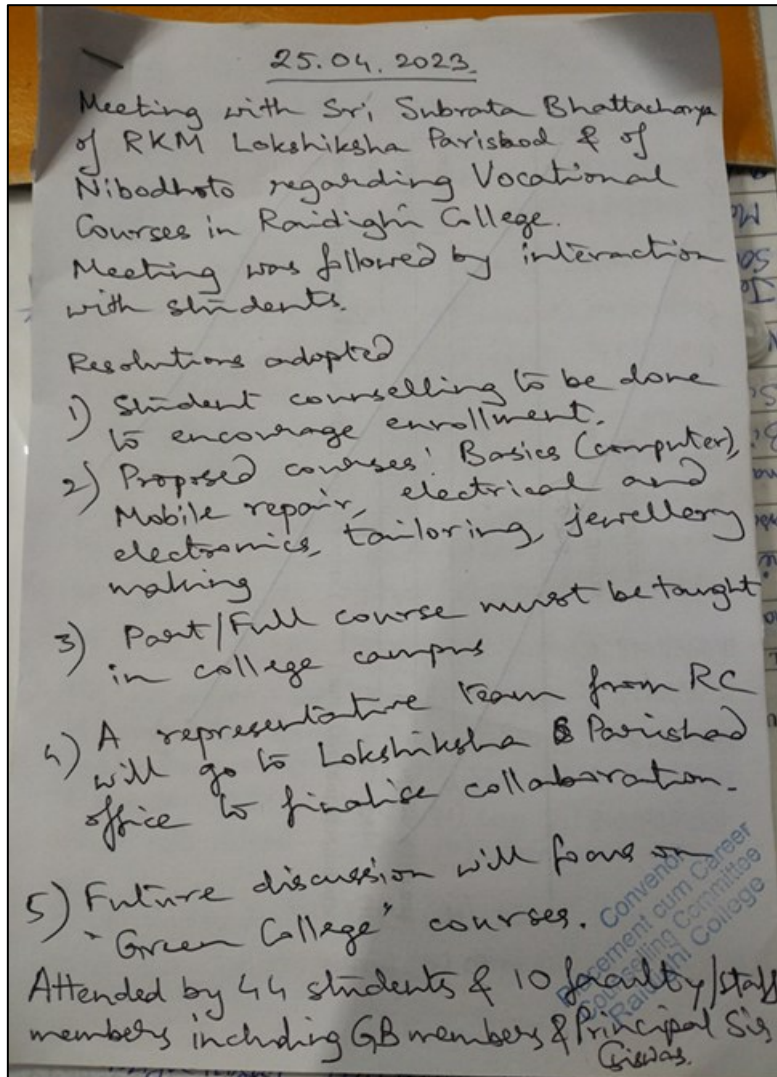 25.04.2023.
Meeting with Sri Subrata Bhattacharya
of RKM Lokshiksha Parishad & of
Nibodhoto regarding Vocational
Courses in Raidighi College.
Meeting was followed by interaction
with students.
Resolutions adopted
1) Student counselling to be done
to encourage enrollment.
2) Proposed courses: Basics (computer),
Mobile repair, electrical and
electronics, tailoring, jewellery
making
3) Part/Full course must be taught
in college campus
4) A representative team from RC
will go to Lokshiksha Parishad
office to finalise collaboration.
5) Future discussion will focus on
"Green College" courses.
Convenor
Placement cum Career
Counselling Committee
Raidighi College
Attended by 44 students & 10 faculty/staff
members including GB members & Principal Sir